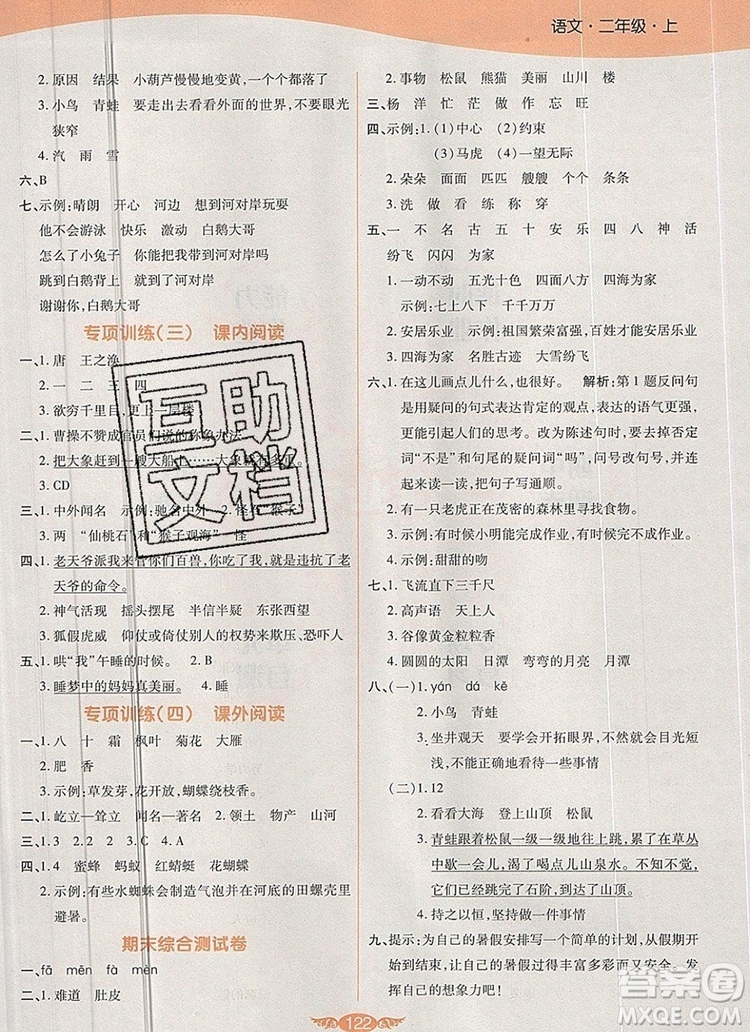 语文·二年级·上
2. 原因 结果 小葫芦慢慢地变黄,一个一个都落了。
3. 小鸟 青蛙 要多出去看看外面的世界,不要眼光
狭窄
4. 汽 雨 雪
六、B
七、示例:晴朗 开心 河边 想到河对岸玩耍
他不会游泳 快乐 激动 白鹅大哥
怎么了小兔子 你可以把我带到河对岸吗
跳到白鹅背上 来到了河对岸
谢谢你,白鹅大哥
专项训练(三) 课内阅读
一、1. 唐 王之涣
2. 一 二 三 四
3. 欲穷千里目,更上一层楼
二、1. 曹操不赞成官员们说的称象办法
2. 把大象赶到一艘大船上……大象就有多重。
3. CD
三、1. 中外闻名 示例:驰名中外 2. 怪石 猴子
3. 两 “仙桃石”和“猴子观海” 怪
四、1. 老天爷派我来管你们百兽,你吃了我,就是违抗了老
天爷的命令。
2. 神气活现 摇头摆尾 半信半疑 东张西望
3. 狐假虎威 仰仗或倚仗别人的权势来欺压、恐吓人
五、1. 哄“我”午睡的时候。 2. B
3. 睡梦中的妈妈真美丽。 4. 睡
专项训练(四) 课外阅读
一、1. 八 十 霜 枫叶 菊花 大雁
2. 肥 香
3. 示例:草发芽,花开放,蝴蝶绕枝香。
二、1. 屹立—耸立 闻名—著名 2. 领土 物产 山河
三、1. 2. 2 2. 3 3. C 4. A
四、1. 4 蜜蜂 蚂蚁 红蜻蜓 花蝴蝶
2. 示例:有些水蜘蛛会制造气泡并在河底的田螺壳里
避暑。
期末综合测试卷
一、fā mēn fà mèn
二、1. 难道 肚皮
2. 事物 松鼠 熊猫 美丽 山川 楼
三、杨 洋 忙 茫 做 作 忘 旺
四、示例:1. (1)中心 (2)约束
(3)马虎 (4)一望无际
2. 朵朵 面面 匹匹 艘艘 个个 条条
3. 洗 做 看 练 称 穿
五、一 不 名 古 五 十 安 乐 四 八 神 活
纷飞 闪闪 为家
1. 一动不动 五光十色 四面八方 四海为家
示例:七上八下 十个 121000
2. 安居乐业 示例:祖国繁荣富强,百姓才能安居乐业。
3. 四海为家 名胜古迹 大雪纷飞
六、1. 在这儿画点儿什么,也很好。 解析:第1题反问句
是用疑问的句式表达肯定的观点,表达的语气更强,
更能引起人们的思考。改成为陈述句,去掉反问词
“难道、不是”和句尾的疑问词“吗”,问号改句号,并
连起来读一读,把句子写通顺。
2. 有一只老虎正在茂密的森林里寻找食物。
3. 示例:(1)有时候小明能完成作业,有时候完不成。
4. 示例:甜甜的吻
七、1. 飞流直下三千尺
2. 高声语 天上人
3. 谷像黄金粒粒香
4. 圆圆的太阳 日潭 弯弯的月亮 月潭
八、(一)1. yán dá kě
2. 小鸟 青蛙
3. 坐井观天 要学会开拓眼界,不要总是目光
短浅
(二)1. 12
2. 看看大海 登上山顶 松鼠
3. 青蛙跟着松鼠一级一级地往上跳,累了在草丛
中歇一会儿,渴了喝一点儿山泉水。终于,
它们已经跳完了石阶,到达了山顶。
4. 持之以恒 坚持不懈地做一件事情
九、提示:为自己的暑假安排写一个简单的计划,从暑假开
始到结束,让自己的暑假更加丰富多彩而又有意义,发挥
自己的想象力吧!
互助
文档
答案圈
MXQE.COM
122